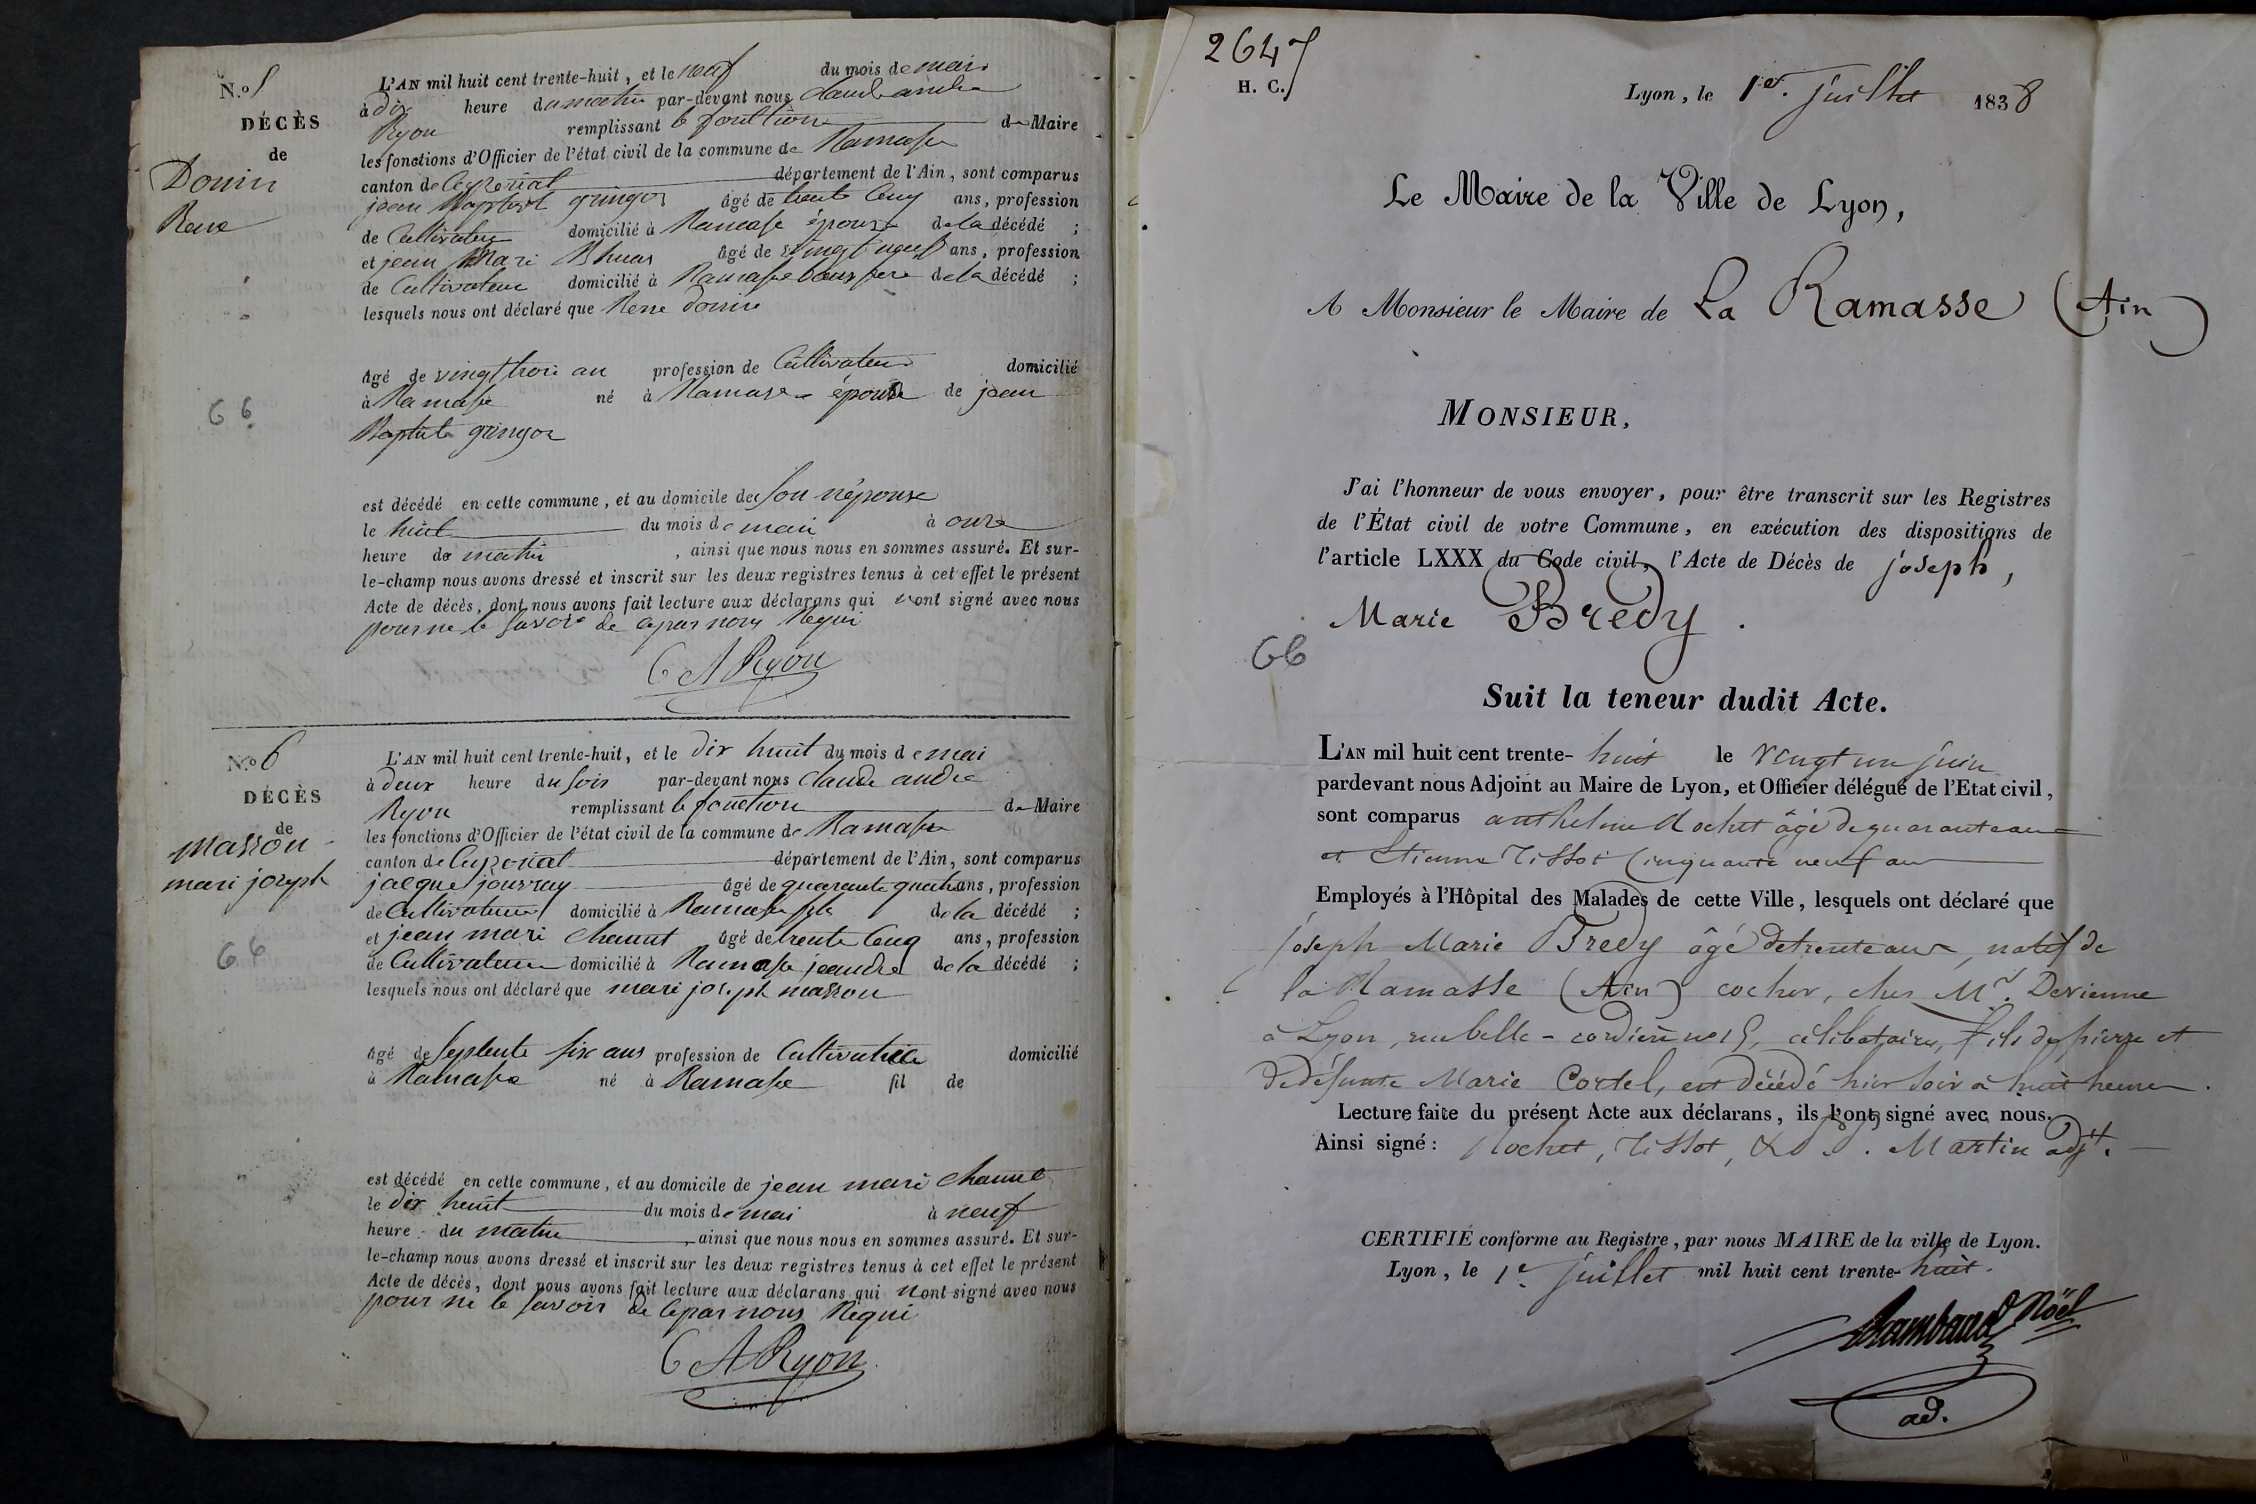 N.º 5
DÉCÈS
de
Donin
Rene
L'AN mil huit cent trente-huit, et le neuf du mois de mai
à dix heure du matin par-devant nous Claude andre
Ryon remplissant le fonction de Maire
les fonctions d'Officier de l'état civil de la commune de Ramasse
canton de Ceyzeriat département de l'Ain, sont comparus
jean Baptist gringoz âgé de trente Cinq ans, profession
de Cultivateur domicilié à Ramasse épouse de la décédé ;
et jean Mari âgé de vingt neuf ans, profession
de Cultivateur domicilié à Ramasse de la décédé ;
lesquels nous ont déclaré que Rene donin
âgé de vingt trois an profession de Cultivateur domicilié
à Ramasse né à Ramasse épouse de jean
Baptiste gringoz
66
est décédé en cette commune, et au domicile de son népouse
le huit du mois de mai à onze
heure de matin, ainsi que nous nous en sommes assuré. Et sur-
le-champ nous avons dressé et inscrit sur les deux registres tenus à cet effet le présent
Acte de décès, dont nous avons fait lecture aux déclarans qui nont signé avec nous
pour ne le savoir de ce par nous Requi
C A Ryon
N.º 6
DÉCÈS
de
Masson
mari joseph
L'AN mil huit cent trente-huit, et le dix huit du mois de mai
à deux heure du soir par-devant nous Claude andre
Ryon remplissant le fonction de Maire
les fonctions d'Officier de l'état civil de la commune de Ramasse
canton de Ceyzeriat département de l'Ain, sont comparus
jacque jouvray âgé de quarante quatre ans, profession
de Cultivateur domicilié à Ramasse de la décédé ;
et jean mari Chanut âgé de trente Cinq ans, profession
de Cultivateur domicilié à Ramasse jeandre de la décédé ;
lesquels nous ont déclaré que mari joseph masson
66
âgé de septente six ans profession de Cultivatrice domicilié
à Ramasse né à Ramasse fil de
est décédé en cette commune, et au domicile de jean mari Chanut
le dix huit du mois de mai à neuf
heure du matin, ainsi que nous nous en sommes assuré. Et sur-
le-champ nous avons dressé et inscrit sur les deux registres tenus à cet effet le présent
Acte de décès, dont nous avons fait lecture aux déclarans qui nont signé avec nous
pour ne le savoir de ce par nous Requi
C A Ryon
2647
H. C.
Lyon, le 1er. juillet 1838
Le Maire de la Ville de Lyon,
A Monsieur le Maire de La Ramasse (Ain)
MONSIEUR,
J'ai l'honneur de vous envoyer, pour être transcrit sur les Registres
de l'État civil de votre Commune, en exécution des dispositions de
l'article LXXX du Code civil, l'Acte de Décès de joseph,
Marie Bredy.
66
Suit la teneur dudit Acte.
L'AN mil huit cent trente-huit le vingt un juin
pardevant nous Adjoint au Maire de Lyon, et Officier délégué de l'Etat civil,
sont comparus anthelme Rochet âgé de quarante ans
et Etienne Tissot Cinquante neuf ans
Employés à l'Hôpital des Malades de cette Ville, lesquels ont déclaré que
joseph Marie Bredy âgé de trente ans, natif de
la Ramasse (Ain) cocher, chez Mr. Devienne
à Lyon, rue belle-cordière no 15, célibataire, fils de pierre et
de défunte Marie Cortel, est décédé hier soir à huit heures.
Lecture faite du présent Acte aux déclarans, ils l'ont signé avec nous.
Ainsi signé : Rochet, Tissot, & Martin adjt.
CERTIFIÉ conforme au Registre, par nous MAIRE de la ville de Lyon.
Lyon, le 1er juillet mil huit cent trente-huit.
Rambaud Noël
ad.